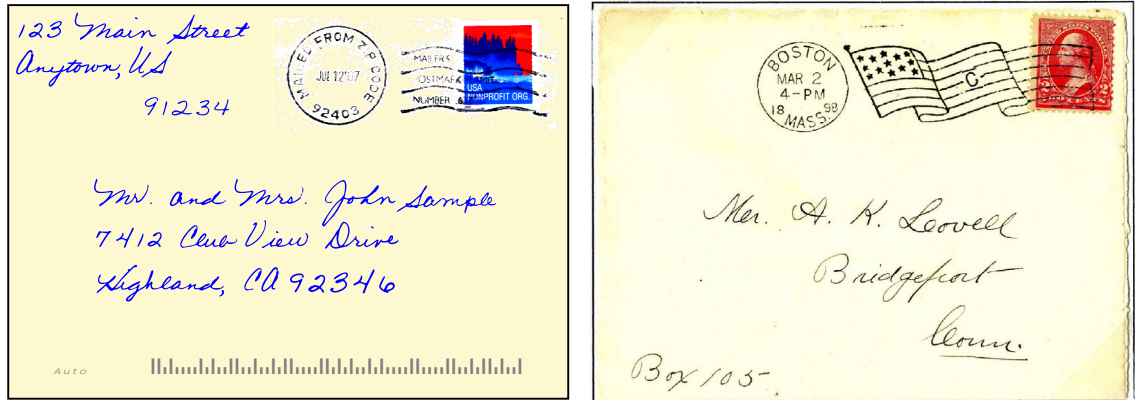 123 Main Street
Anytown, US
91234
MAILED FROM ZIP CODE
JUL 12'07
92403
MAILER'S
POSTMARK
NUMBER
USA
NONPROFIT ORG.
Mr. and Mrs. John Sample
7412 Club View Drive
Highland, CA 92346
Auto
BOSTON
MAR 2
4-PM
18 98
MASS.
C
Mr. A. K. Lovell
Bridgeport
Conn.
Box 105.